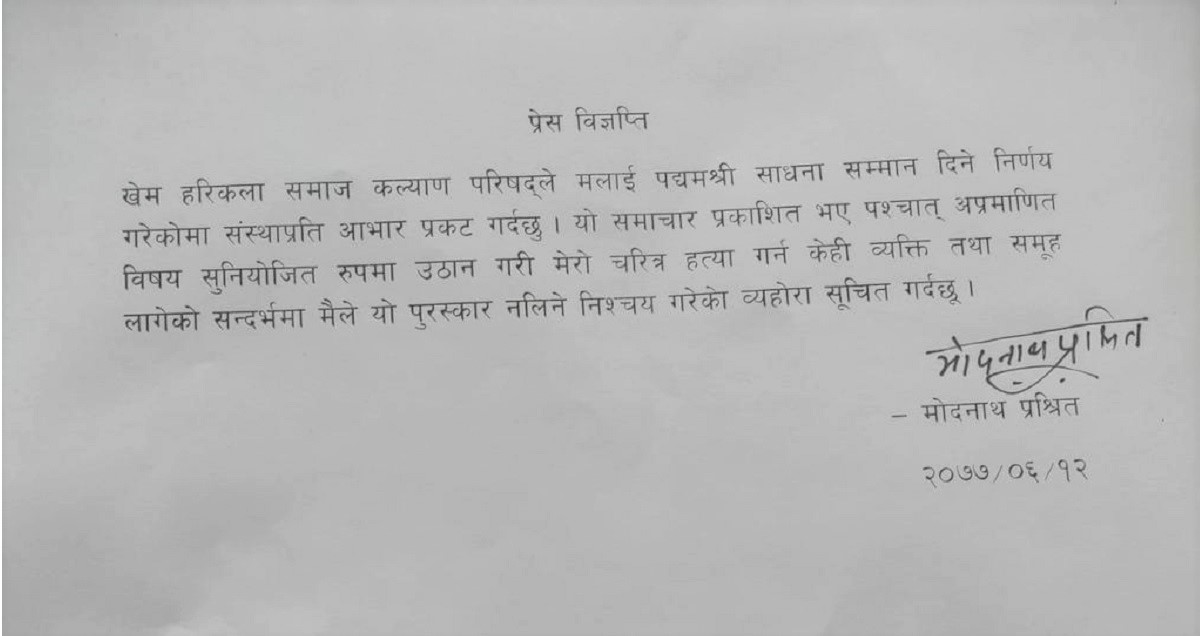 प्रेस विज्ञप्ति
खेम हरिकला समाज कल्याण परिषद्ले मलाई पद्यमश्री साधना सम्मान दिने निर्णय
गरेकोमा संस्थाप्रति आभार प्रकट गर्दछु । यो समाचार प्रकाशित भए पश्चात् अप्रमाणित
विषय सुनियोजित रुपमा उठान गरी मेरो चरित्र हत्या गर्न केही व्यक्ति तथा समूह
लागेको सन्दर्भमा मैले यो पुरस्कार नलिने निश्चय गरेको व्यहोरा सूचित गर्दछू ।
मोदनाथ प्रश्रित
– मोदनाथ प्रश्रित
२०७७/०६/१२